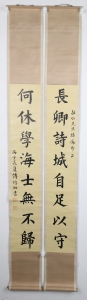 長卿詩城自足以守
何休學海士無不歸